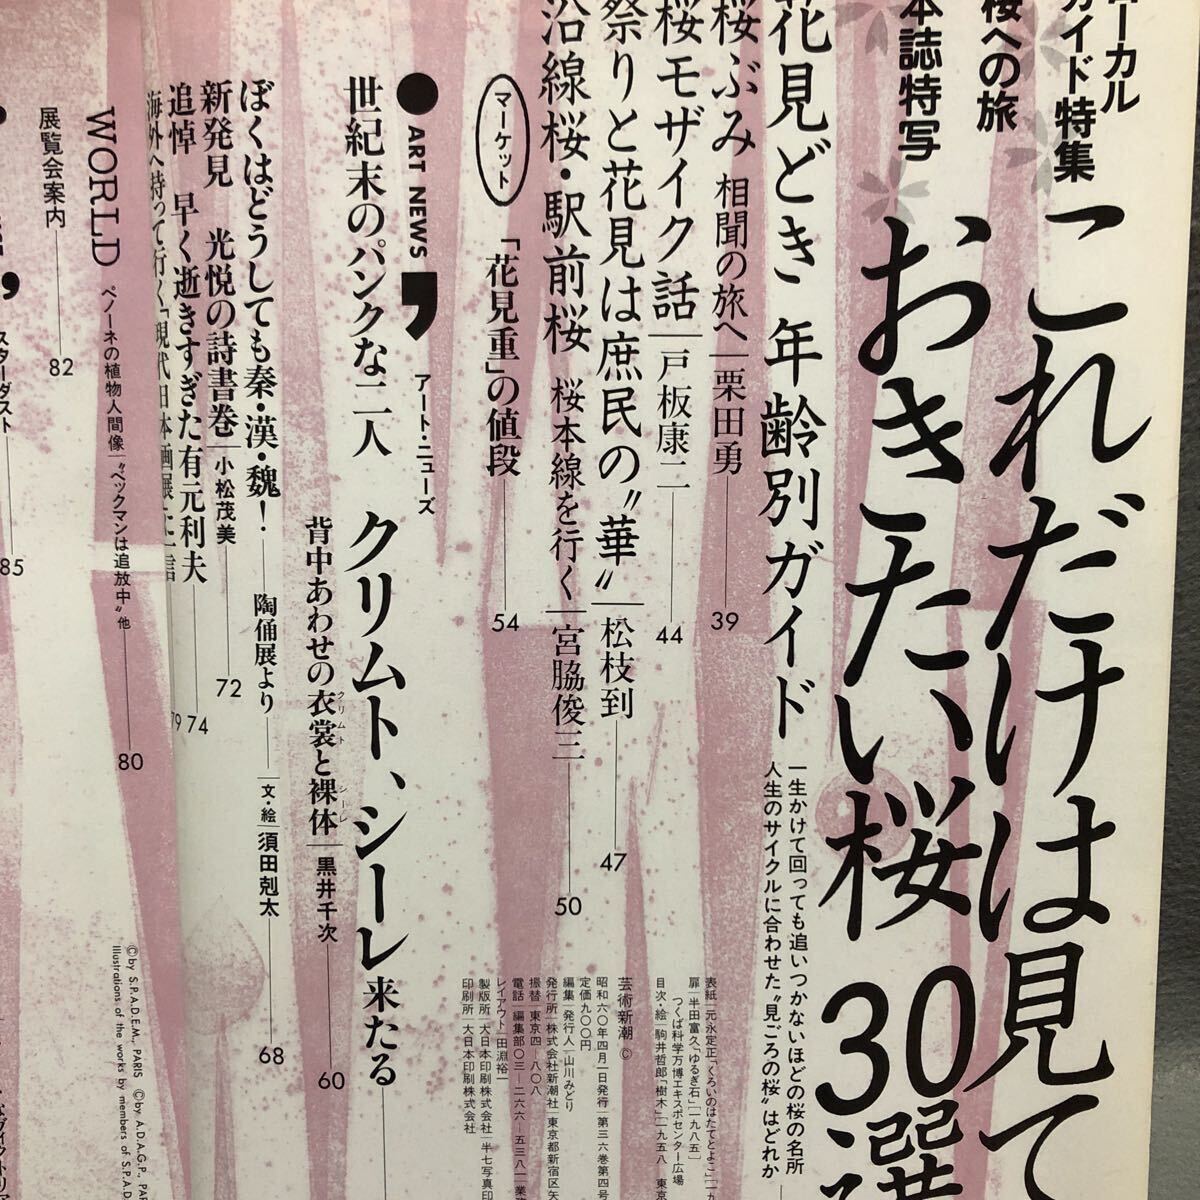 ローカル
ガイド特集
桜への旅
本誌特写
これだけは見て
おきたい桜30選
花見どき 年齢別ガイド
一生かけて回っても追いつかないほどの桜の名所
人生のサイクルに合わせた〝見ごろの桜〟はどれか
桜ぶみ 相聞の旅へ 栗田勇 39
桜モザイク話 戸板康二 44
祭りと花見は庶民の〝華〟 松枝到 47
沿線桜・駅前桜 桜本線を行く 宮脇俊三 50
マーケット 「花見重」の値段 54
●ART NEWS アート・ニューズ
世紀末のパンクな二人 クリムト、シーレ来たる
背中あわせの衣裳と裸体 黒井千次 60
クリムト
シーレ
ぼくはどうしても秦・漢・魏! 陶俑展より 文・絵 須田剋太 68
新発見 光悦の詩書巻 小松茂美 72
追悼 早く逝きすぎた有元利夫 74
海外へ持って行く「現代日本画展」に一言 79
WORLD ペノーネの植物人間像 〝ベックマンは追放中〟他 80
展覧会案内 82
スターダスト 85
表紙 元永定正「くろいのはたてとよこ」[一九
扉 半田富久「ゆるぎ石」[一九八五]
つくば科学万博エキスポセンター広場
目次・絵 駒井哲郎「樹木」[一九五八 東京
芸術新潮 ©
昭和六〇年四月一日発行 第三六巻第四号
定価九〇〇円
編集 発行人 山川みどり
発行所 株式会社新潮社 東京都新宿区矢
振替 東京四―八〇八
電話 編集部〇三―二六六―五三八一 業務
レイアウト 田淵裕一
製版所 大日本印刷株式会社 半七写真印
印刷所 大日本印刷株式会社
©by S.P.A.D.E.M., PARIS ©by A.D.A.G.P., PAR
Illustrations of the works by members of S.P.A.D